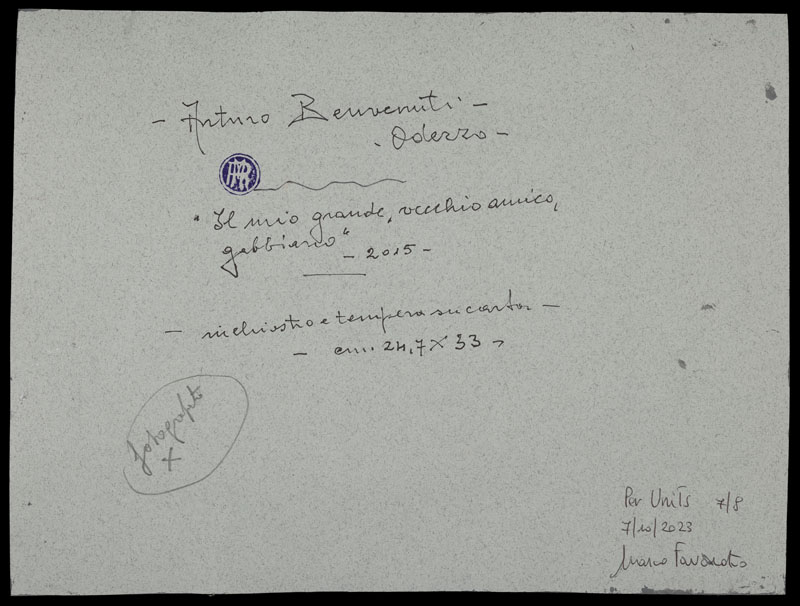 - Arturo Benvenuti -
- Oderzo -
"Il mio grande, vecchio amico,
gabbiano"
- 2015 -
- inchiostro e tempera su carta -
- cm. 24,7 X 33 -
fotografato
X
Per Units 7/8
7/10/2023
Marco